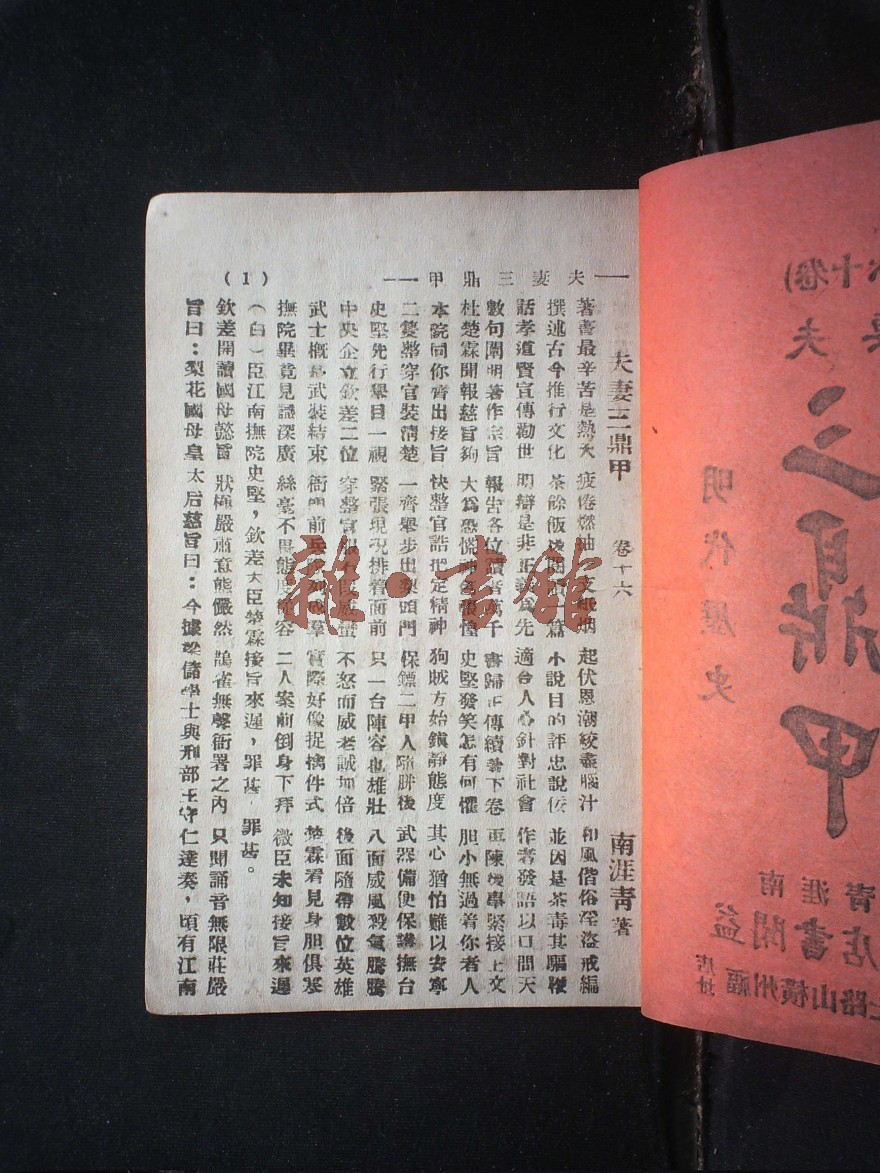 夫妻三鼎甲
(1)
夫妻三鼎甲 卷十六 南涯靑著
著書最辛苦是熱天 疲倦燃油支紙烟 起伏恩潮絞盡腦汁 和風偕俗淫盜戒編
撰述古今推行文化 茶餘飯後 篇 小說目的評忠說佞 並因是茶毒其驅鞭
話孝道賢宣傳勸世 明辯是非正 爲先 適合人心針對社會 作者發語以口問天
數句闡明著作宗旨 報吿各位讀者 千 書歸正傳續 下卷 再陳後學緊接上文
杜楚霖聞報慈旨夠 大爲恐慌 張惶 史堅發笑怎有何懼 胆小無過着你者人
本院同你齊出接旨 快整官誥把定精神 狗賊方始鎮靜態度 其心猶怕難以安寧
二雙整穿官裝淸楚 一齊舉步出 頭門 保鏢二甲人隨胼後 武器備便保護撫台
史堅先行舉目一視 緊張現况排着面前 只一台陣容也雄壯 八面威風殺氣騰騰
中央企立欽差二位 穿整官服 威 不怒而威老誠加倍 後面隨帶數位英雄
武士概是武裝結束 衙門前兵列成羣 實際好像捉擒件式 楚霖看見身胆俱寒
撫院畢竟見識深廣 絲毫不畏態度 容 二人案前倒身下拜 微臣未知接旨來遲
(白)臣江南撫院史堅，欽差大臣楚霖接旨來遲，罪甚 罪甚。
欽差開讀國母懿旨 狀極嚴肅意態儼然 鵲雀無聲衙署之內 只聞誦音無限莊嚴
旨曰：梨花國母皇太后慈旨曰：今據梁儲學士與刑部王守仁達奏，頃有江南
雜·書館
十卷)
夫
三鼎甲
明代歷史
南涯靑
益聞書店
店址
福州橫山路